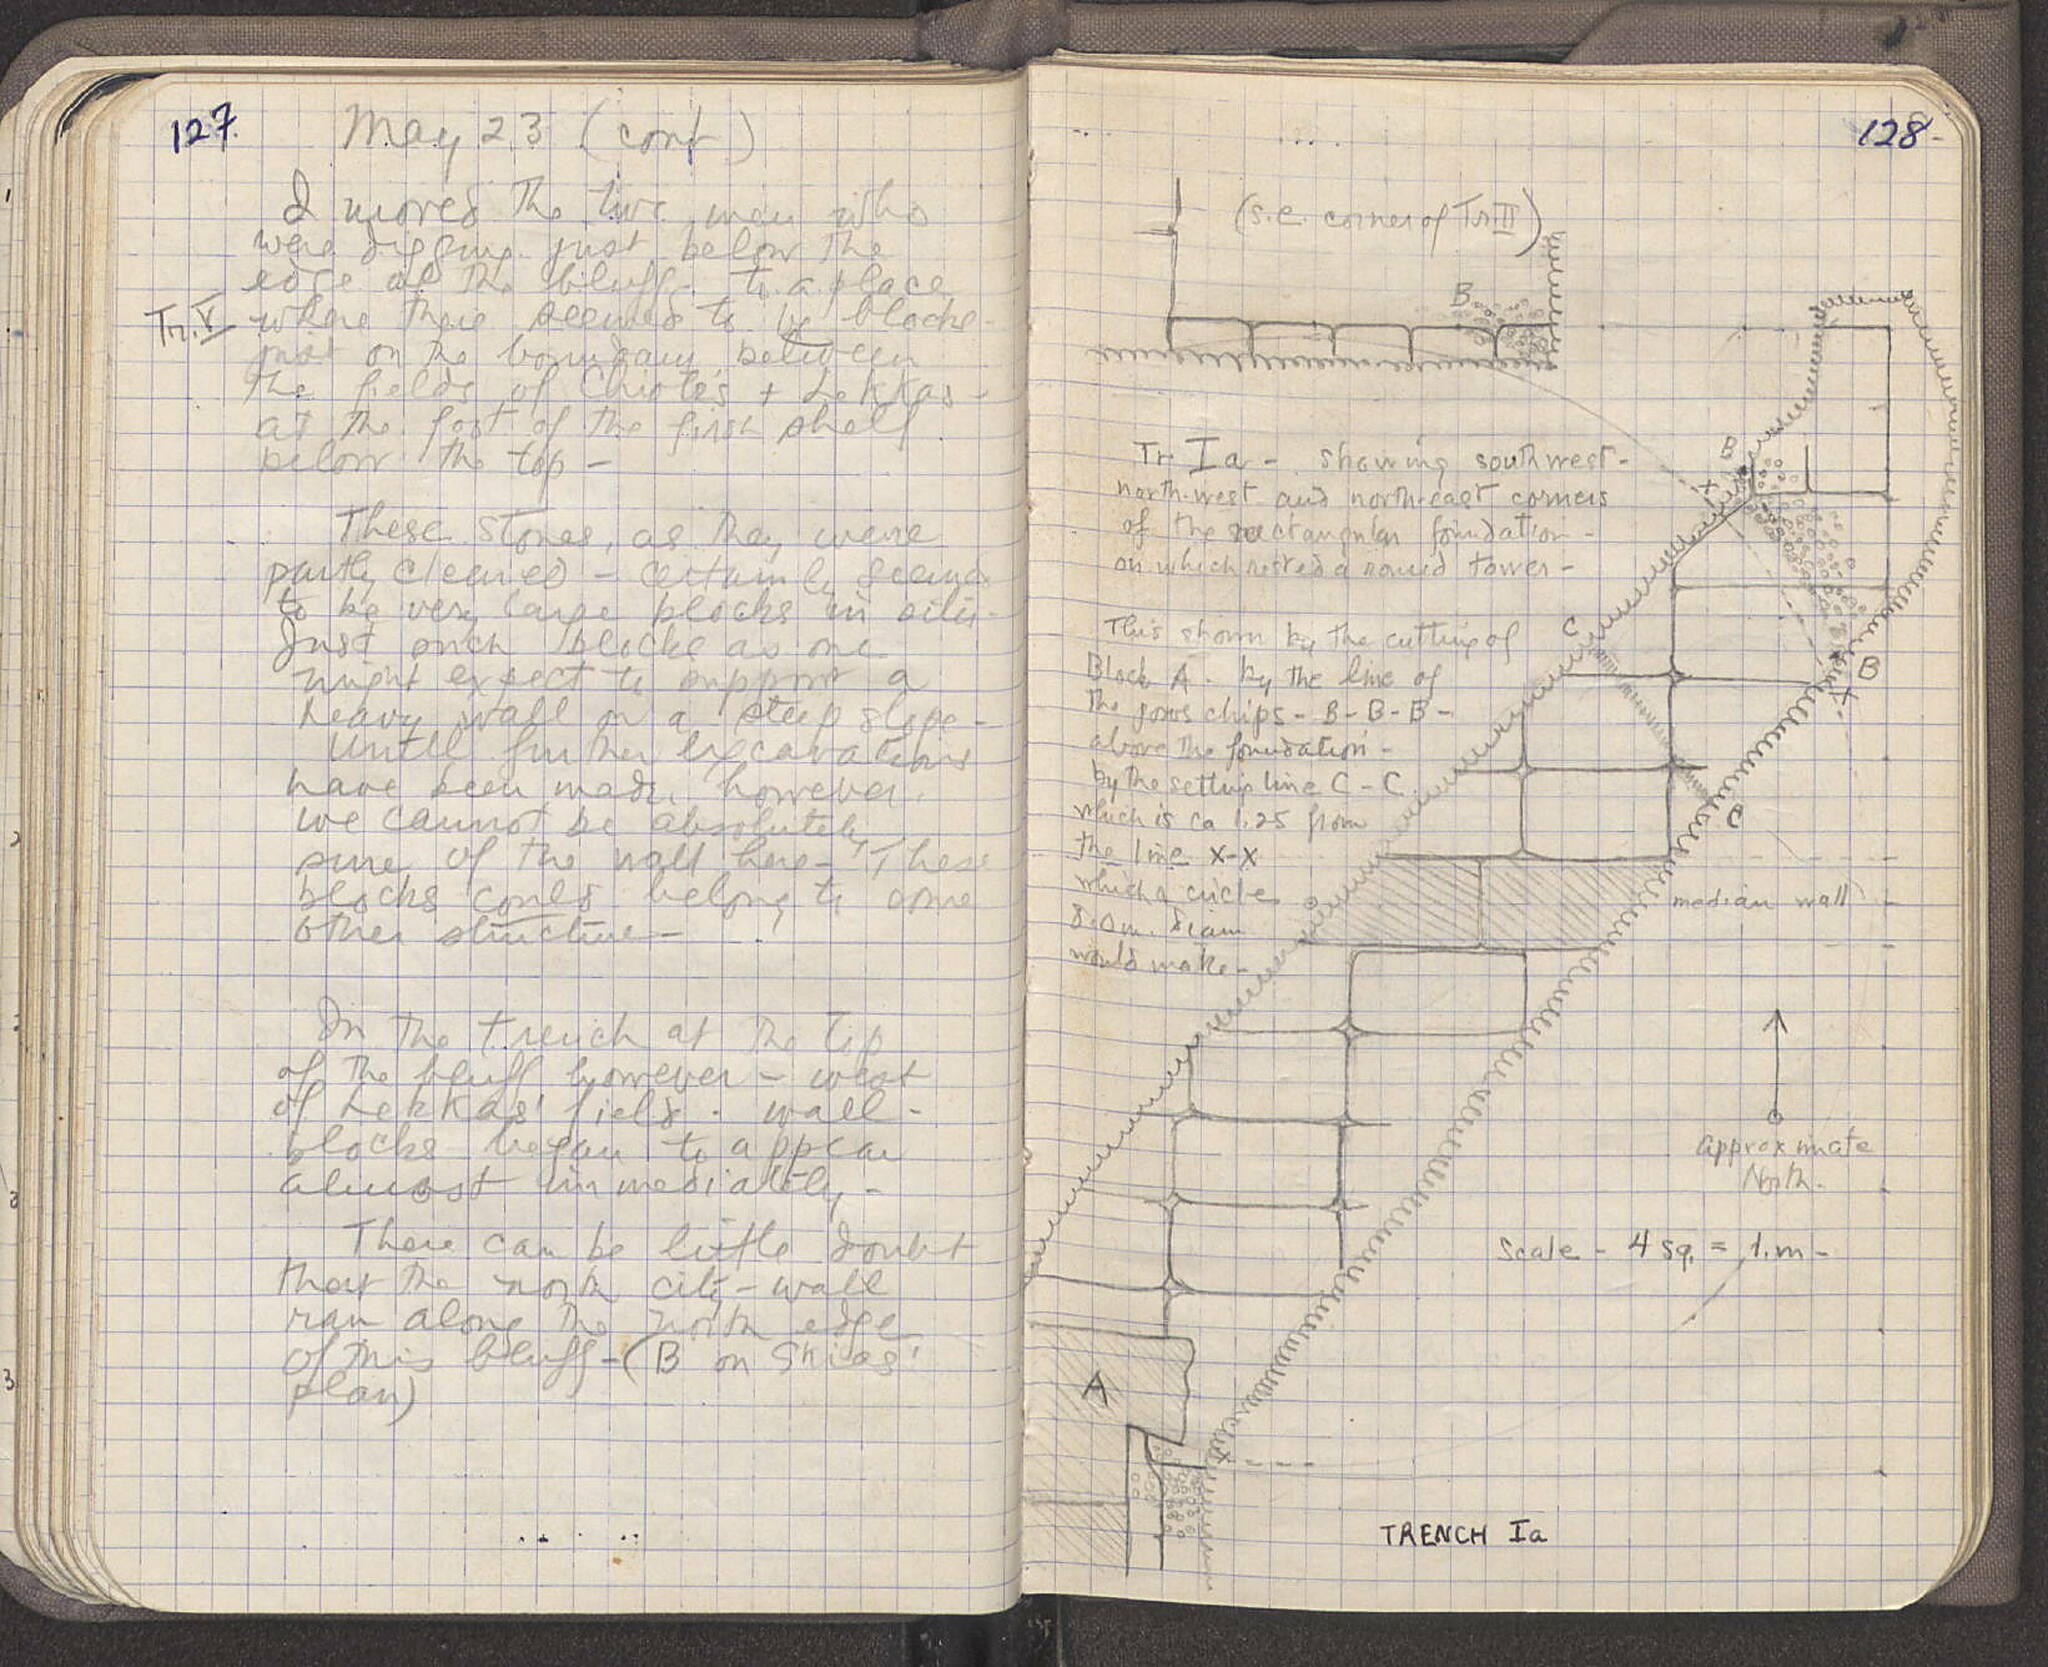 127.
May 23 (cont)
I moved the two men who
were digging just below the
edge of the bluff - to a place
Tr. V
where there seemed to be blocks -
just on the boundary between
the fields of & Lekkas -
at the foot of the first shelf
below the top -
These stones, as they were
partly cleared - certainly seemed
to be very large blocks in situ -
Just such blocks as one
might expect to support a
heavy wall on a steep slope -
Until further excavations
have been made, however,
we cannot be absolutely
sure of the wall here - These
blocks could belong to some
other structure -
In the trench at the top
of the bluff however - west
of Lekkas' field - wall -
blocks began to appear
almost immediately -
There can be little doubt
that the north city-wall
ran along the north edge
of this bluff - (B on Skias'
plan)
128-
(s.e. corner of Tr. III)
B
Tr. Ia - showing southwest -
north-west and north-east corners
of the rectangular foundation -
on which rested a round tower -
This shown by the cutting of
Block A - by the line of
the poros chips - B-B-B -
above the foundation -
by the setting line C-C
which is ca 1.25 from
the line x-x
which a circle
8.0m. diam
would make -
B
x
C
B
x
C
median wall
approximate
North -
Scale - 4 sq. = 1.m -
A
x
TRENCH Ia